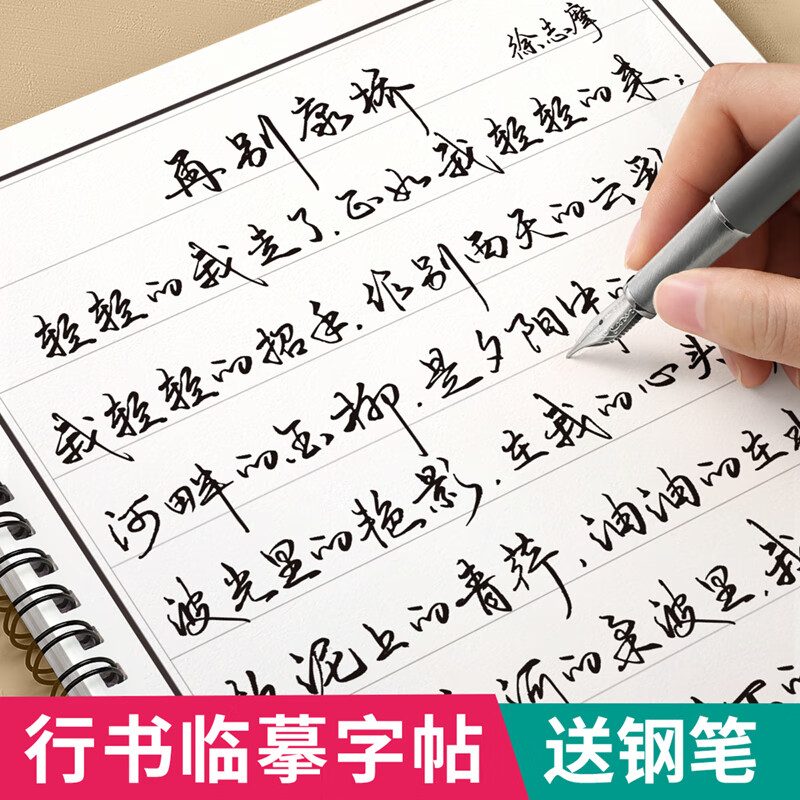 徐志摩
再别康桥
轻轻的我走了，正如我轻轻的来；
我轻轻的招手，作别西天的云彩
河畔的金柳，是夕阳中的
波光里的艳影，在我的心头
泥上的青荇，油油的在
河的柔波里，我
行书临摹字帖
送钢笔